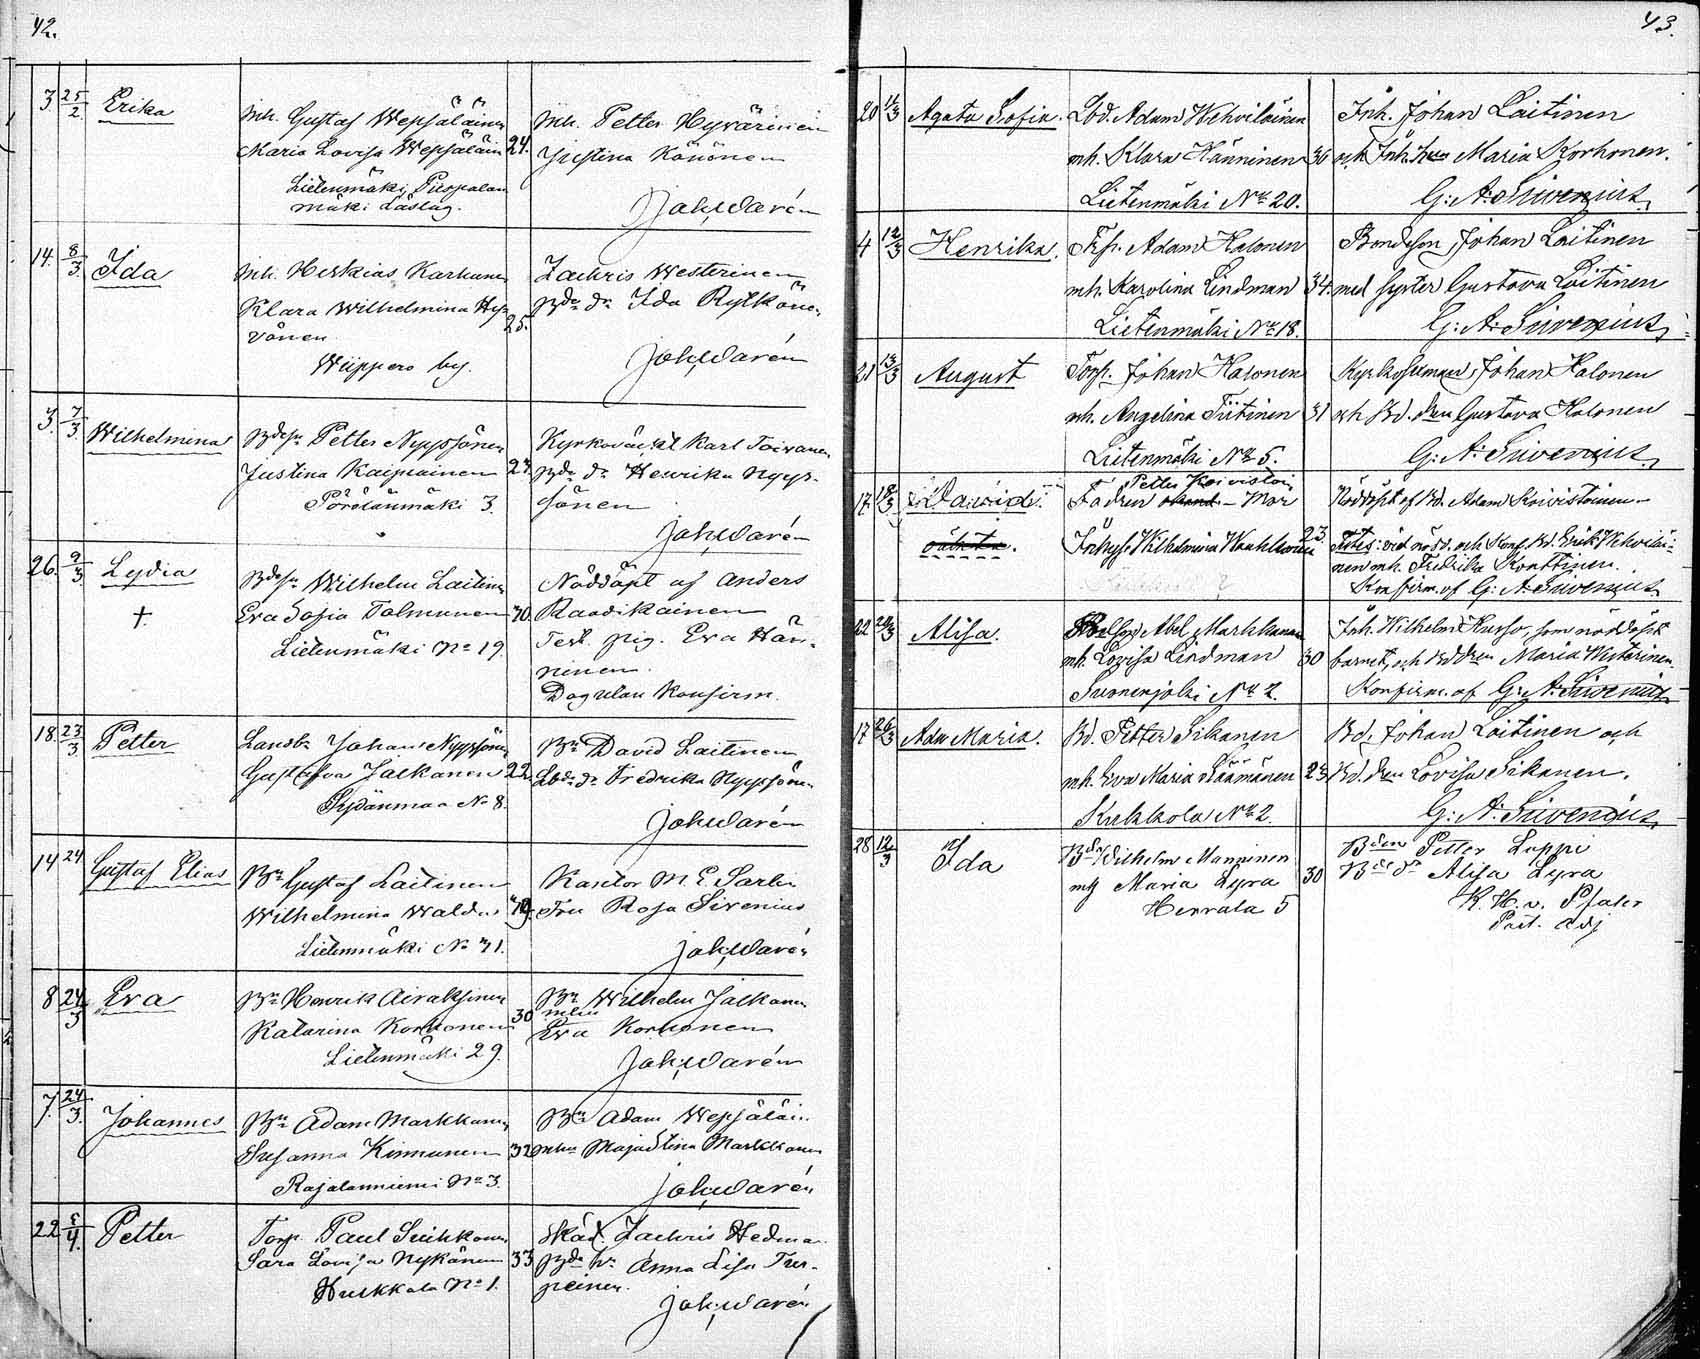 42.
3 25/2 Erika
Inh. Gustaf Wepsäläinen
Maria Lovisa Wepsäläin 24.
Lietenmäki
mäki
Inh. Petter Hyvärinen
Justina Könönen
Joh. Warén
14. 8/3 Ida
Inh. Herkias Karhunen
Klara Wilhelmina Hyvönen 25.
by.
Zachris Westerinen
Ida Rytköne
Joh. Warén
3. 7/3 Wilhelmina
Bdesn Petter Nyyssönen
Justina Kaipiainen 27.
Pörölänmäki 3.
Karl Toivanen
Bde dr Henrika Nyys-
sönen
Joh. Warén
26. 9/3 Lydia
+
Bdesn Wilhelm Laitine
Eva Sofia Tolmunen 40.
Lietenmäki No 19.
Nöddöpt af Anders
Raadikainen
Test. pig. Eva Hän-
ninen.
Konfirm.
18. 23/3 Petter
Landb. Johan Nyyssönen
Gustafva Jalkanen 22
Sydänmaa No 8.
Bn David Laitinen
Lbde dr Fredrika Nyyssöne
Joh. Warén
14 24 Gustaf Elias
Bn Gustaf Laitinen
Wilhelmina
Lietenmäki No 41.
Kantor M. E. Sarlin
Fru Rosa Sivenius
Joh. Warén
8 24/3 Eva
Bn Henrik Airaksinen
Katarina Korhonen 30
Lietenmäki 29.
Bn Wilhelm Jalkanen
mhu
Eva Korhonen
Joh. Warén
7. 24/3. Johannes
Bn Adam Markkanen
Susanna Kinnunen 32
Rajalanniemi No 3.
Bn Adam Wepsäläin
mhu Maja Stina Markkanen
Joh. Warén
22 5/4. Petter
Torp. Paul Suihkonen
Sara Lovisa Nykänen 33
No 1.
Zachris Hedman
Bde hr Anna Lisa Tur-
peinen.
Joh. Warén
43.
20 11/3 Agata Sofia.
Lbd. Adam Wehviläinen
mh. Klara Hänninen 36
Lietenmäki No 20.
Inh. Johan Laitinen
och Inh. hru Maria Korhonen.
G: A: Sivenius.
4 12/3 Henrika.
Adam Halonen
mh. Karolina Lindman 34.
Lietenmäki No 18.
Bondeson Johan Laitinen
med syster Gustava Laitinen
G: A: Sivenius.
21 13/3 August
Torp. Johan Halonen
mh. Angelina Tiitinen 31
Lietenmäki No 5.
Johan Halonen
och Bd. dren Gustava Halonen
G: A: Sivenius.
17. 18/3 Dawid.
oäkta.
Petter Koivistoi
Fadren okänd - Mor
Inhys. Wilhelmina 23.
Nöddöpt af Bd. Adam Koivistoinen -
Testes: vid nödd. och Konf. Bd. Erik Wehviläi-
nen mh. Fredrika Konttinen.
Konfirm. af G: A: Sivenius.
22 24/3 Alisa.
Abel Markkanen
mh. Lovisa Lindman 30
Suonenjoki No 2.
Inh. Wilhelm Hurso, som nöddöpt
barnet, och Bd dren Maria Westerinen.
Konfirm. af G: A: Sivenius.
17 26/3 Ada Maria.
Bd. Petter Sikanen
mh. Eva Maria Säämänen 23
Kukkola No 2.
Bd. Johan Laitinen och
Bd. dren Lovisa Sikanen.
G: A: Sivenius.
28 12/3 Ida
Bdsn Wilhelm Manninen
Maria Lyra 30
Herrala 5
Petter Luppi
Bde dr Alisa Lyra
K. H. v. Pfaler
Past. adj